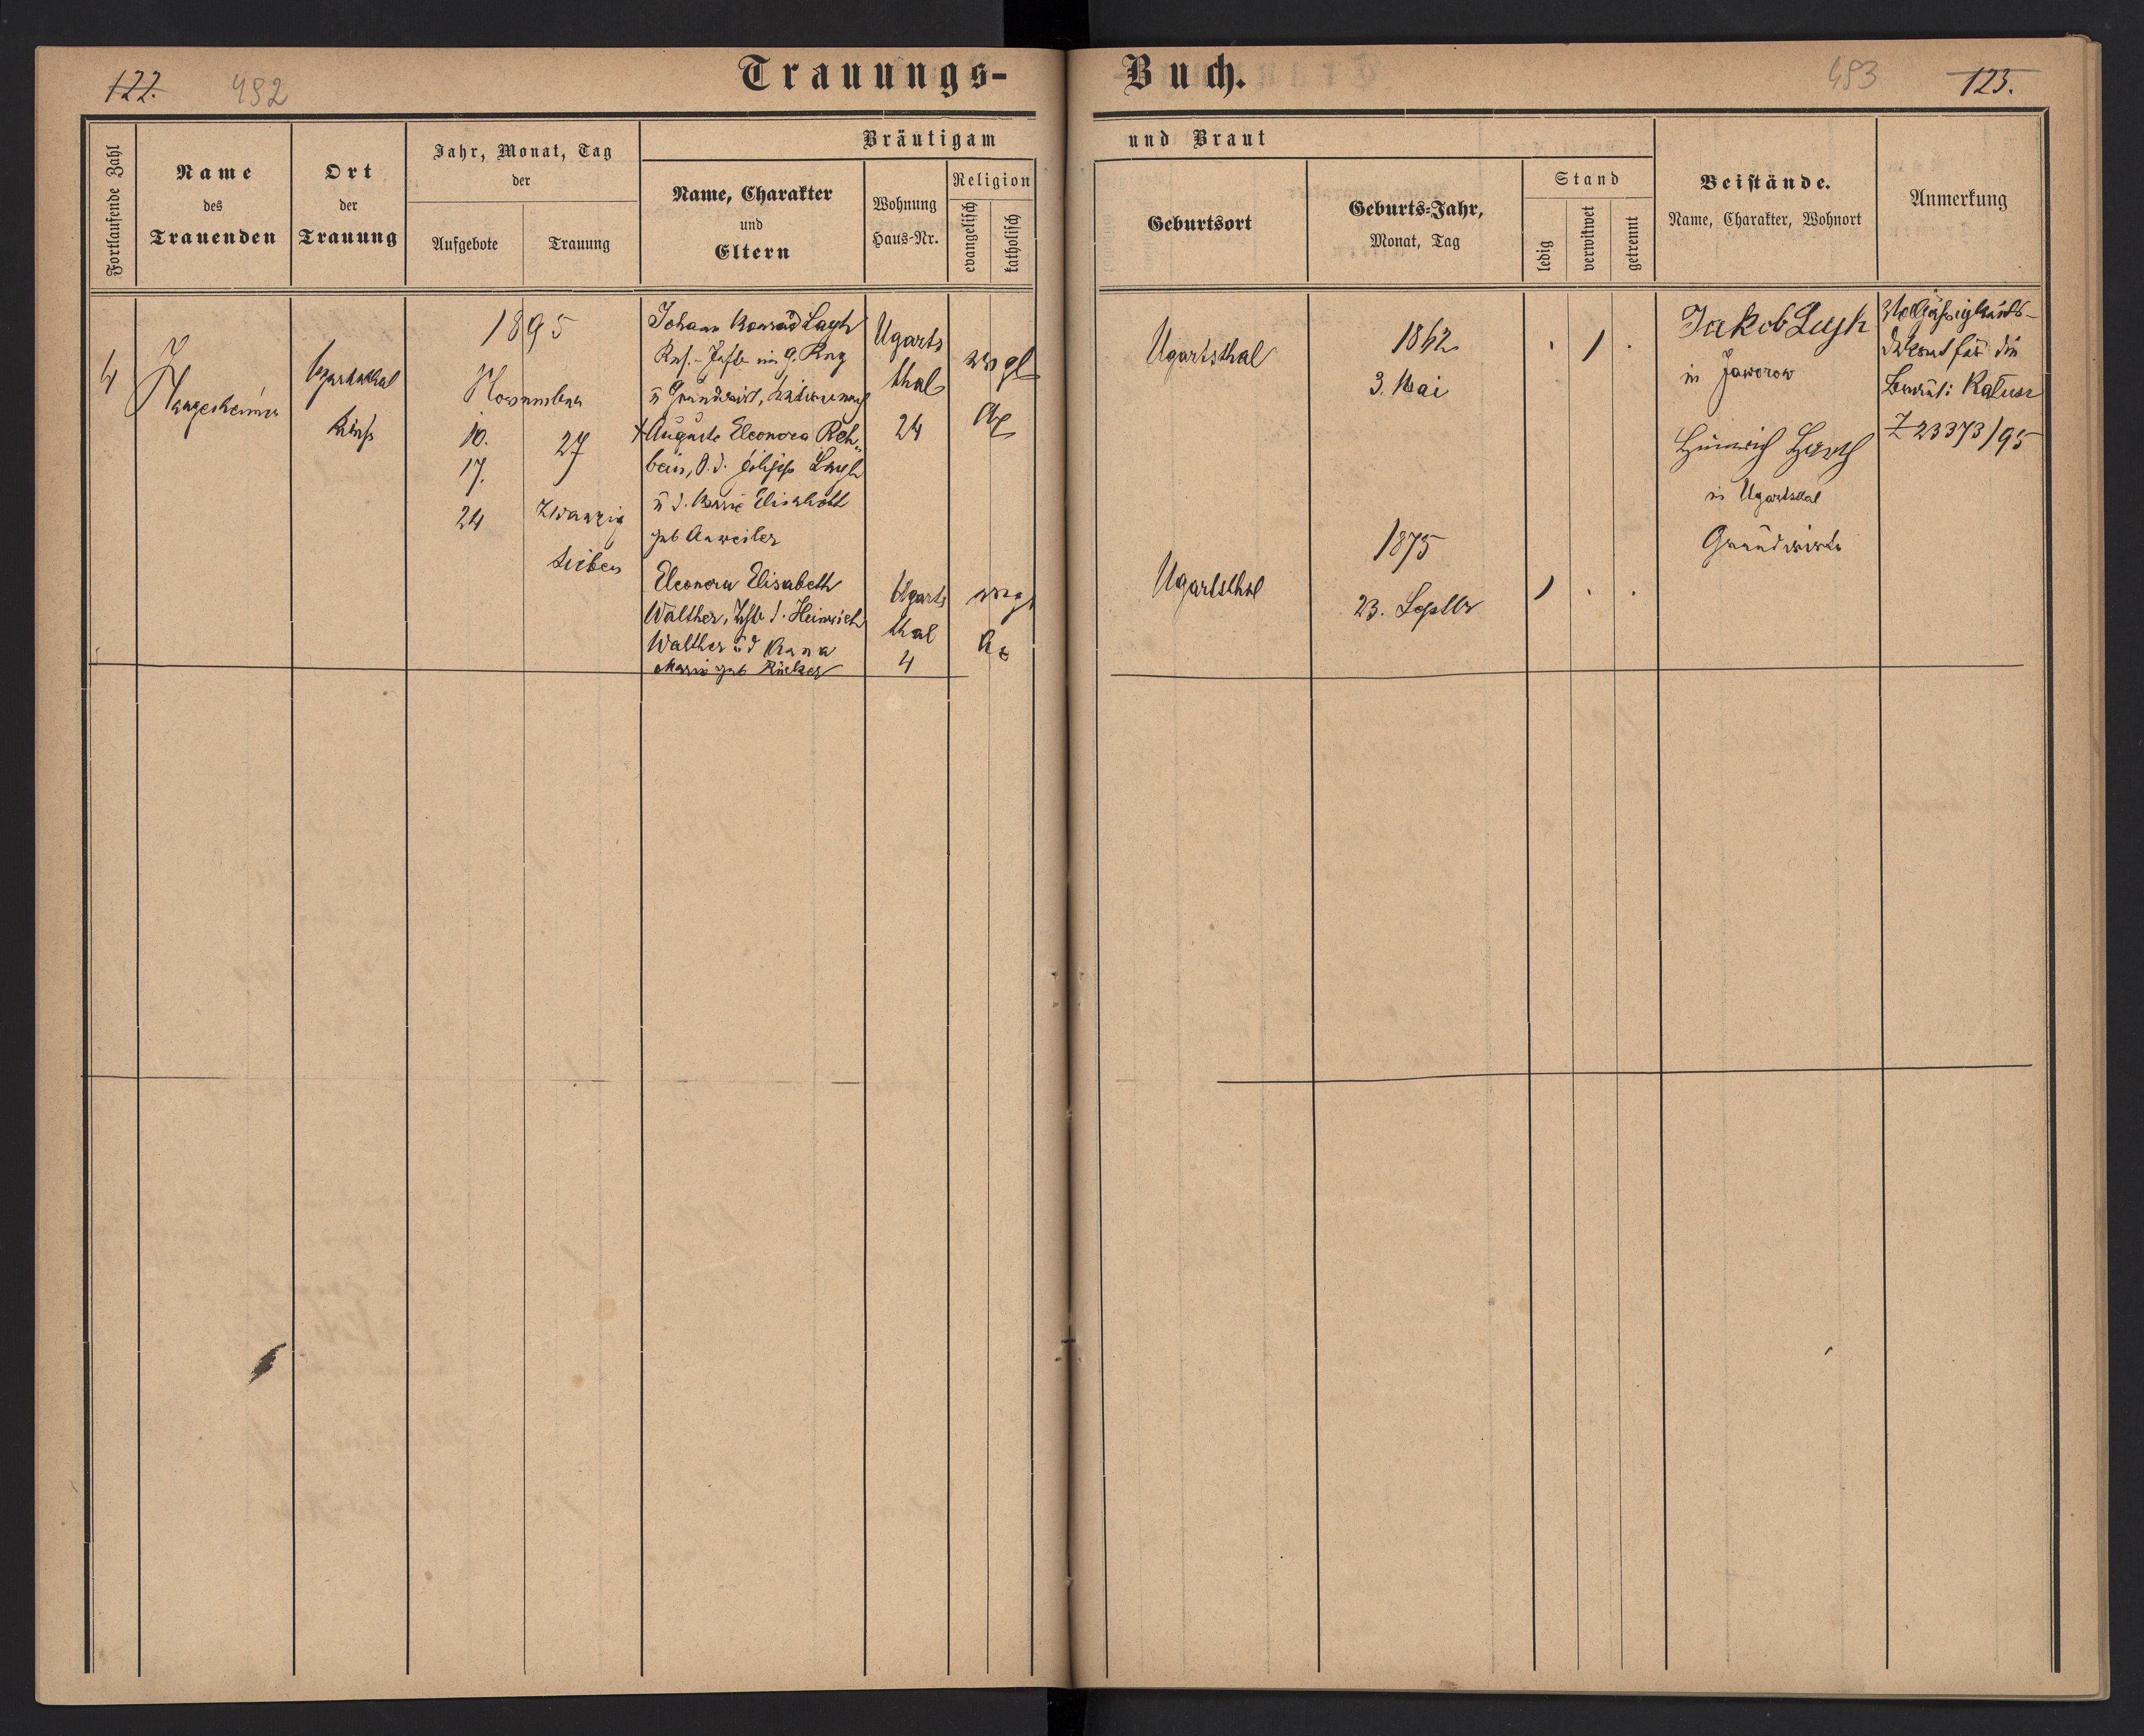 122. 492
Trauungs-
Buch.
493 123.
Fortlaufende Zahl
Name
des
Trauenden
Ort
der
Trauung
Jahr, Monat, Tag
der
Aufgebote
Trauung
Bräutigam
Name, Charakter
und
Eltern
Wohnung
Haus-Nr.
Religion
evangelisch
katholisch
und Braut
Geburtsort
Geburts-Jahr,
Monat, Tag
Stand
ledig
verwitwet
getrennt
Beistände.
Name, Charakter, Wohnort
Anmerkung
4
Ugartsthal
1895
November
10.
17.
24
27
Zwanzig
sieben
Johann Konrad Layh
ü Grundwirt,
Auguste Eleonora Reh-
bein, Layh
ü d. Elisabeth
geb Anweiler
Ugarts
thal
24
evgl
AC
Ugartsthal
1862
3. Mai
. 1 .
Jakob Layh
in Jaworow
Heinrich
in Ugartsthal
Grundwirte
Volljährigkeits-
für die
Braut: Kałusz
Z 23373/95
Eleonora Elisabeth
Walther, Heinrich
Walther
Marie geb Rücker
Ugarts
thal
4
evgl
Ugartsthal
1875
23. Septbr
1 . .